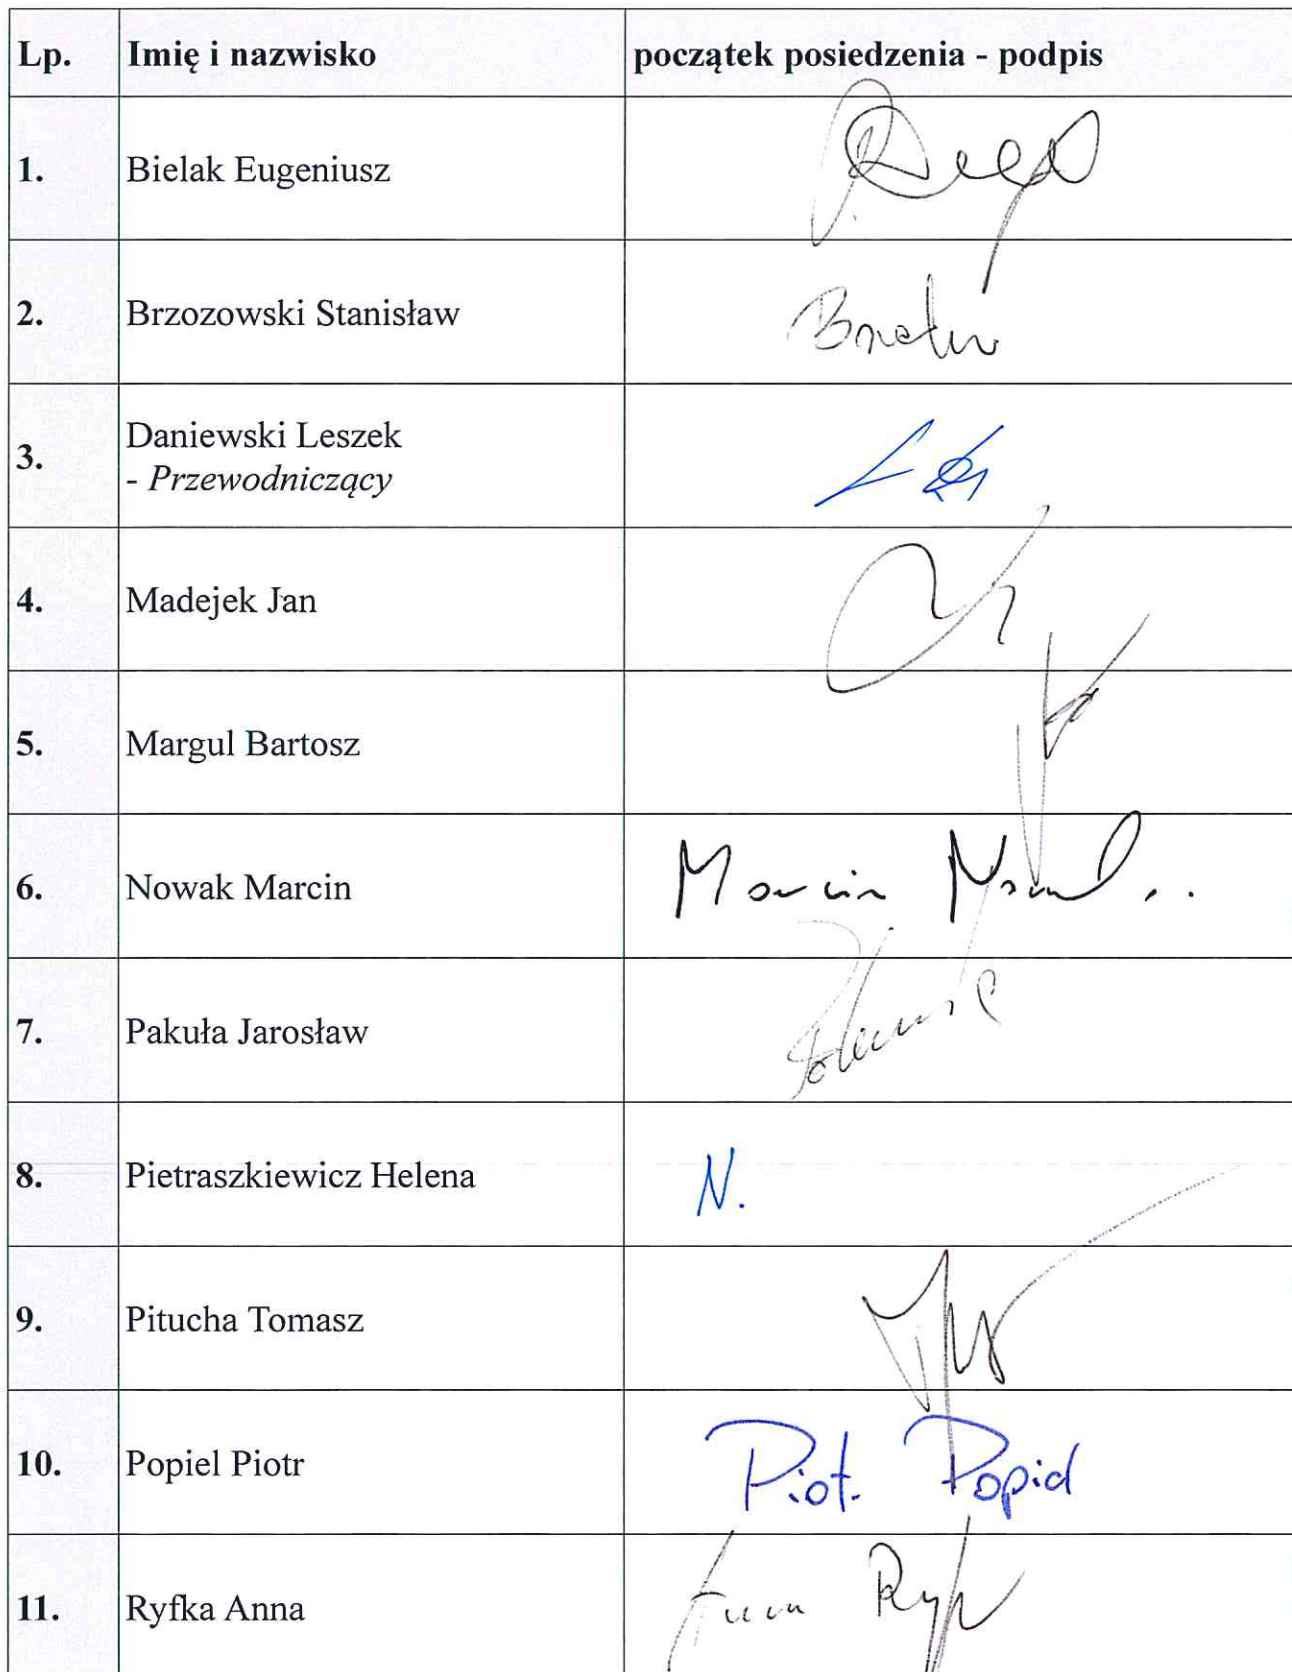 Lp. Imię i nazwisko początek posiedzenia - podpis
1. Bielak Eugeniusz
2. Brzozowski Stanisław
3. Daniewski Leszek
- Przewodniczący
4. Madejek Jan
5. Margul Bartosz
6. Nowak Marcin Marcin
7. Pakuła Jarosław
8. Pietraszkiewicz Helena N.
9. Pitucha Tomasz
10. Popiel Piotr Piotr Popiel
11. Ryfka Anna